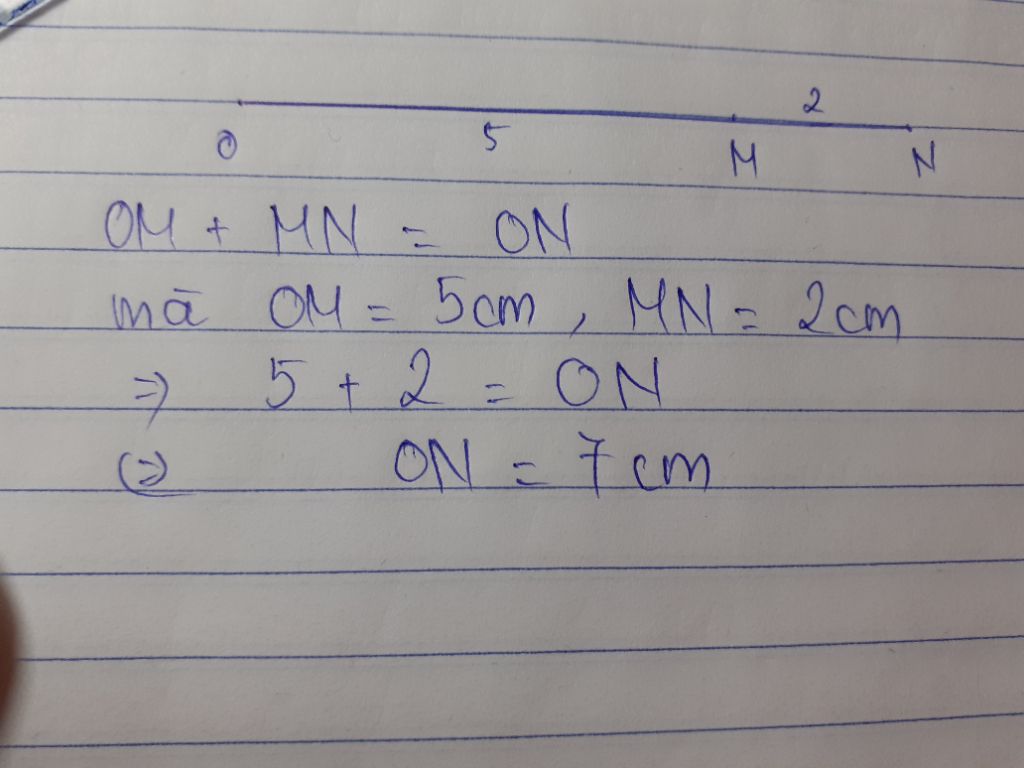 2
O 5 M N
OM + MN = ON
mà OM = 5cm, MN = 2cm
=> 5 + 2 = ON
(=> ON = 7cm